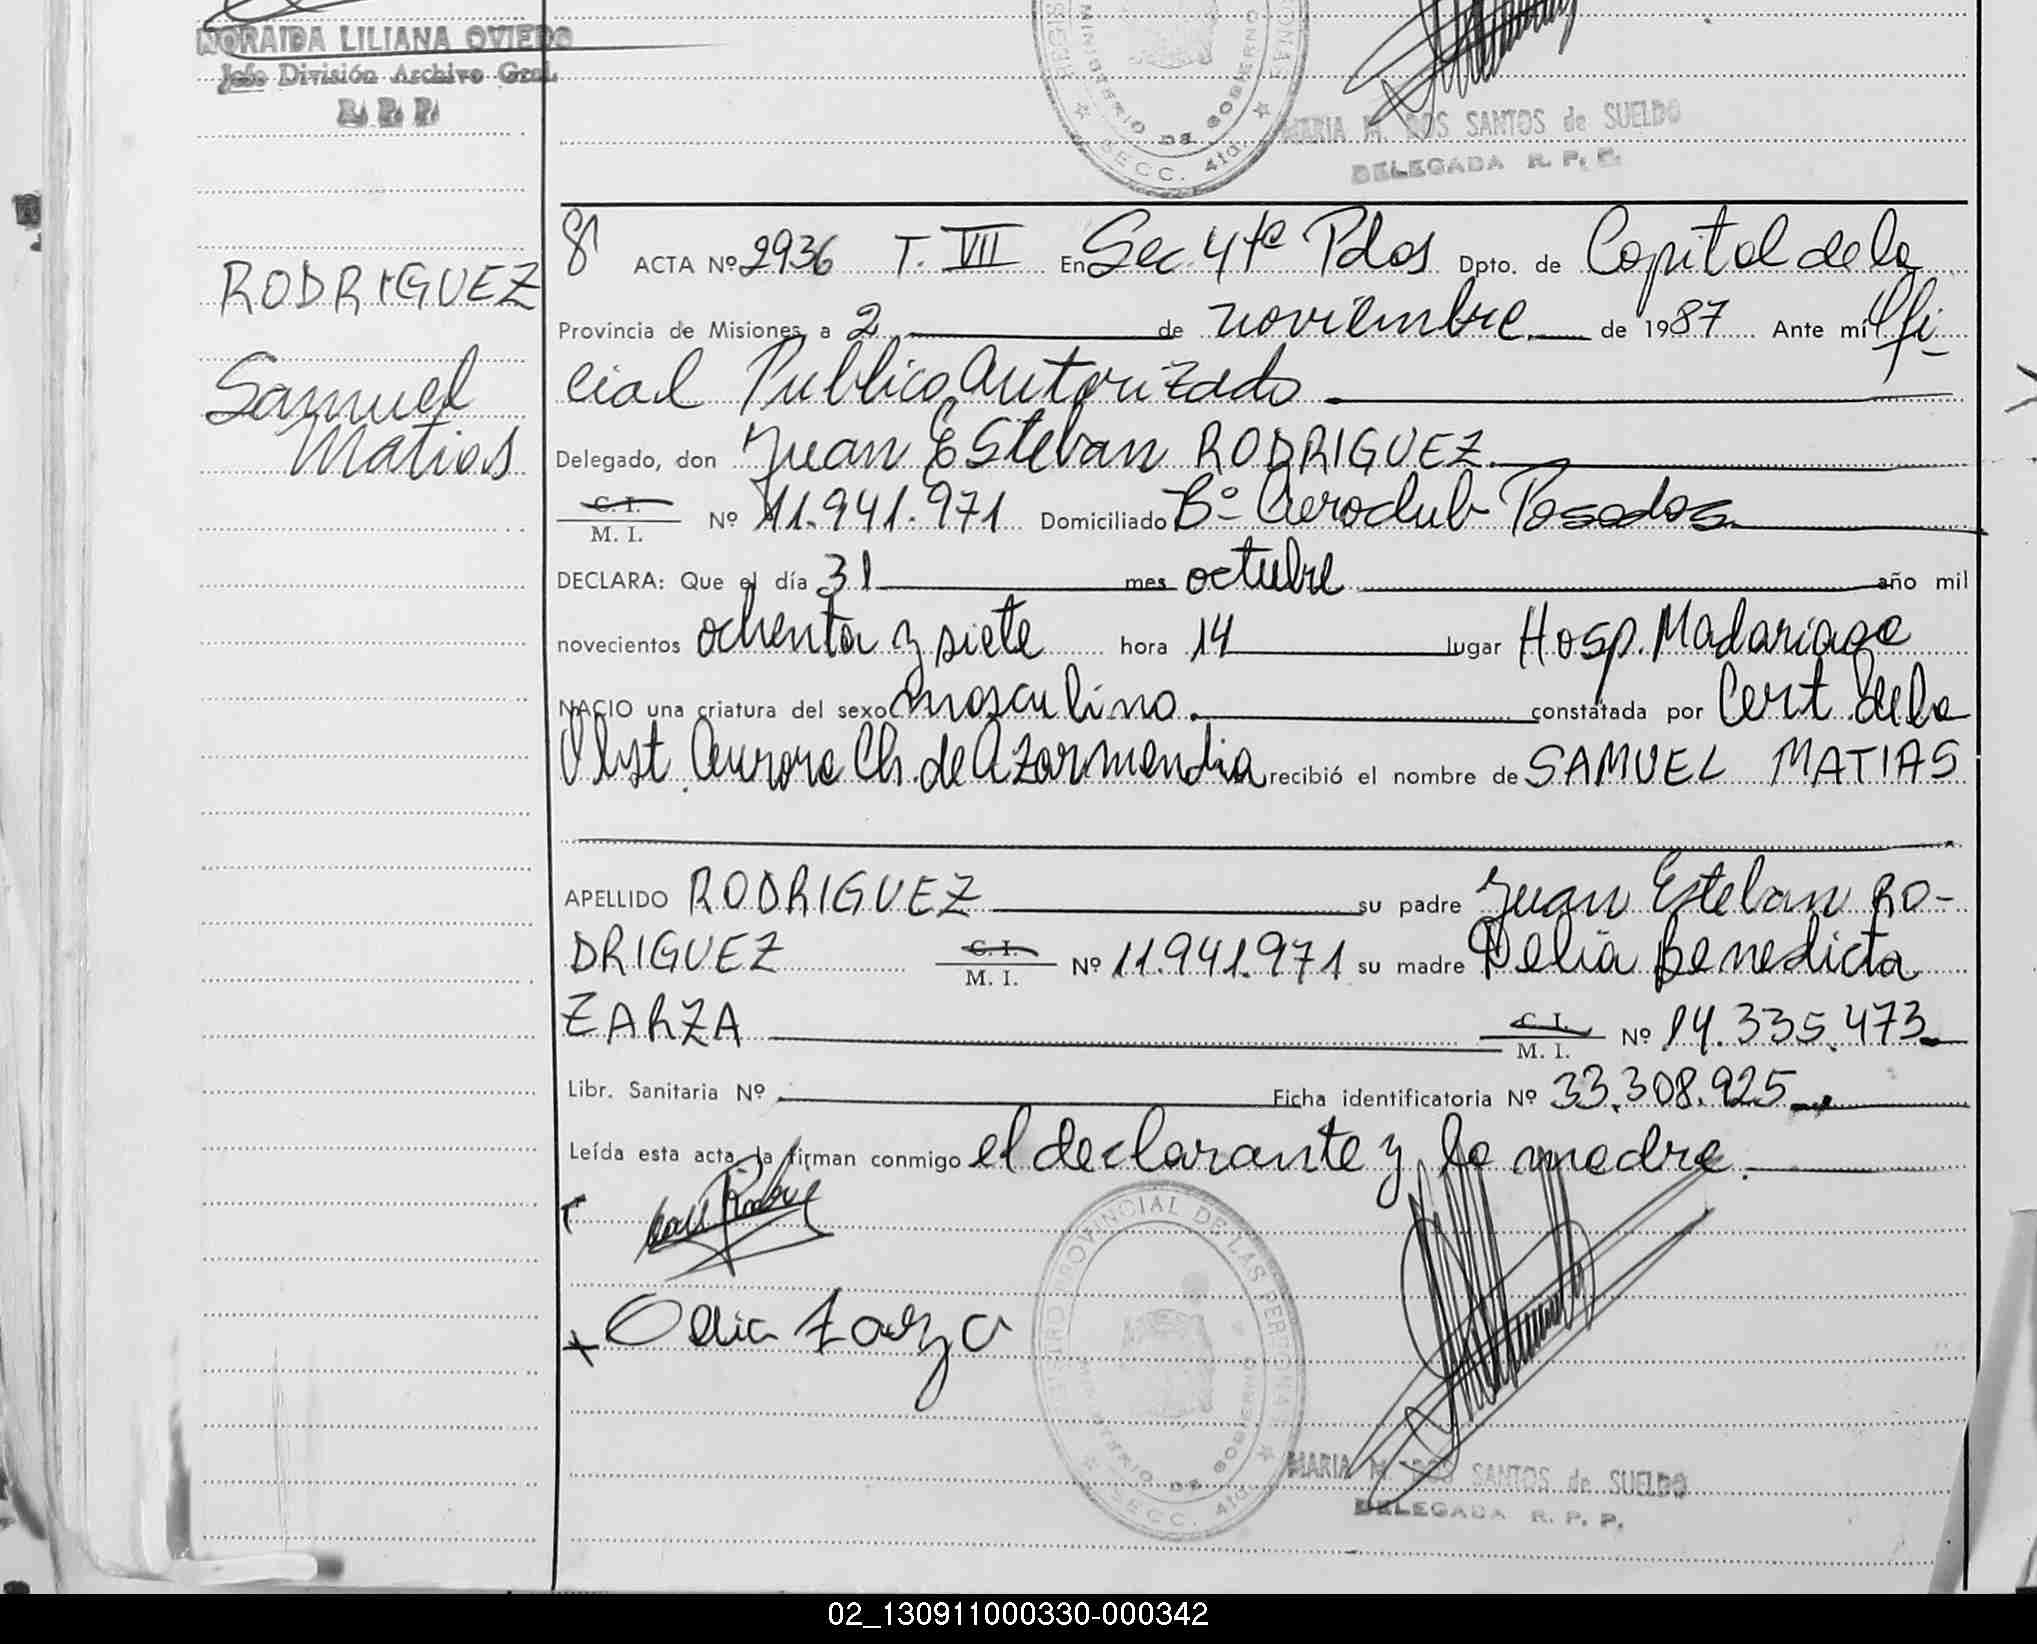 NORAIDA LILIANA OVIEDO
Jefe División Archivo Gral.
R. P. P.
MINISTERIO DE GOBIERNO
SECC. 4ta.
MARIA M. DOS SANTOS de SUELDO
DELEGADA R. P. P.
RODRIGUEZ
Samuel
Matias
ACTA Nº 2936 T. VII En Sec. 4ta Pdas Dpto. de Capital de la
Provincia de Misiones a 2 de noviembre de 1987 Ante mí Ofi-
cial Publico Autorizado
Delegado, don Juan Esteban RODRIGUEZ
C. I.
M. I. Nº 11.941.971 Domiciliado Bº Aeroclub Posadas
DECLARA: Que el día 31 mes octubre año mil
novecientos ochenta y siete hora 14 lugar Hosp. Madariaga
NACIO una criatura del sexo masculino. constatada por Cert. de la
Obst. Aurora Ch. de Azarmendia recibió el nombre de SAMUEL MATIAS
APELLIDO RODRIGUEZ su padre Juan Esteban RO-
DRIGUEZ C. I. M. I. Nº 11.941.971 su madre Delia Benedicta
ZARZA C. I. M. I. Nº 14.335.473
Libr. Sanitaria Nº Ficha identificatoria Nº 33.308.925
Leída esta acta, la firman conmigo el declarante y la madre.
Delia Zarza
REGISTRO PROVINCIAL DE LAS PERSONAS
MINISTERIO DE GOBIERNO
SECC. 4ta.
MARIA M. DOS SANTOS de SUELDO
DELEGADA R. P. P.
02_130911000330-000342